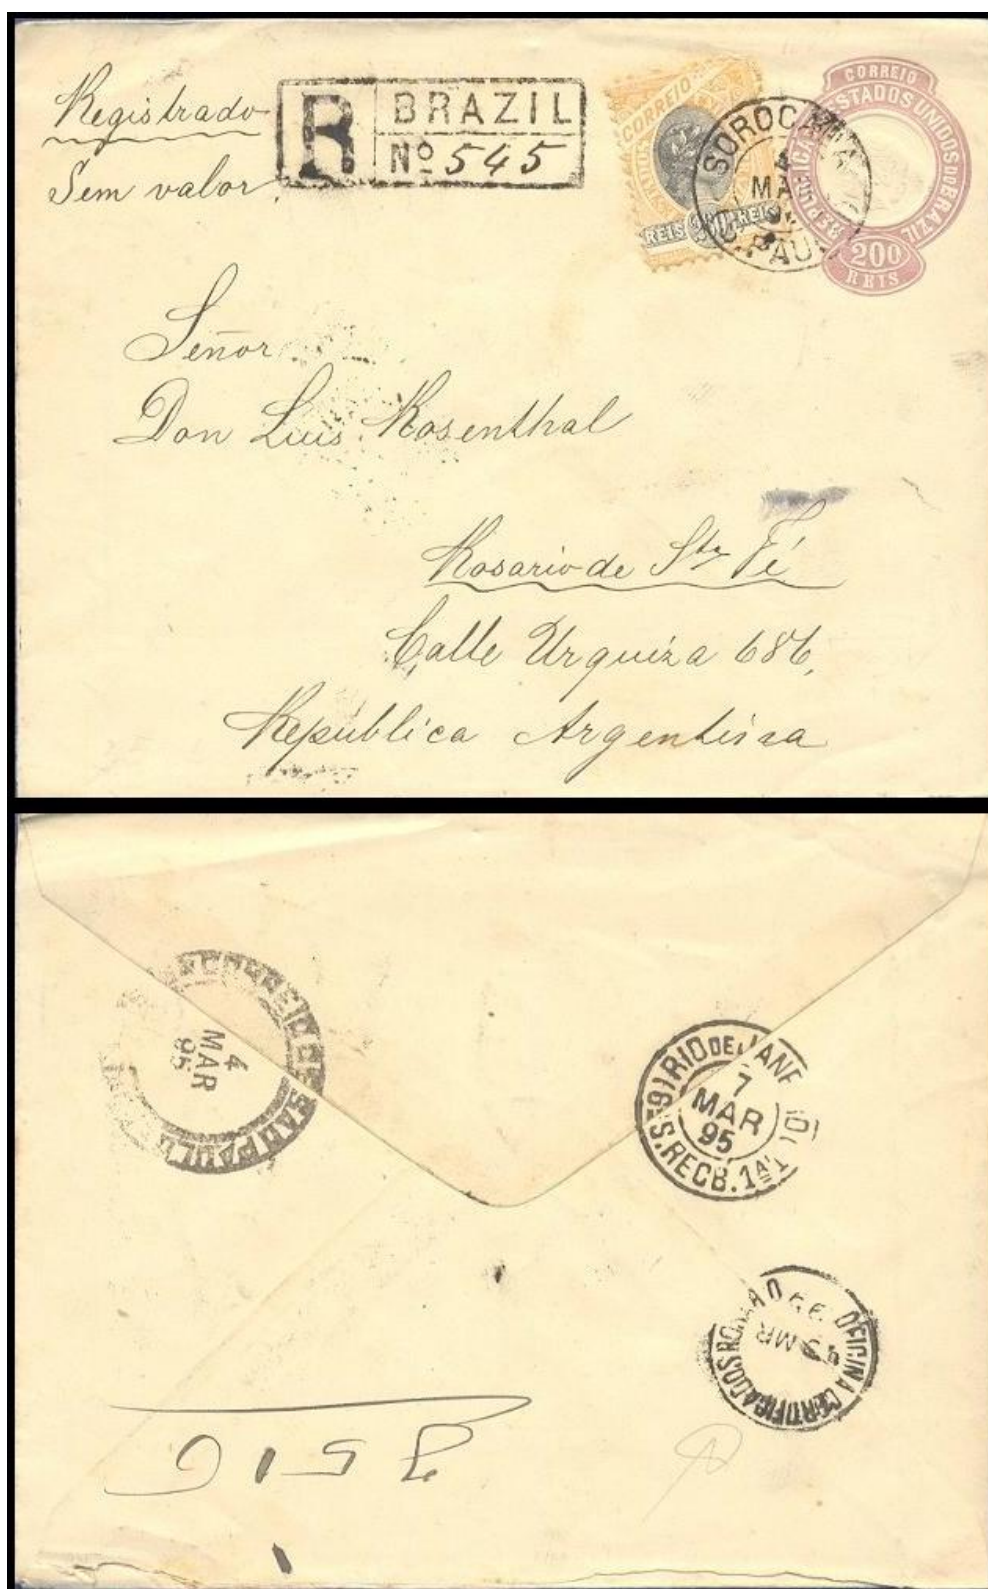 Registrado
Sem valor.
R BRAZIL
Nº 545
CORREIO
REIS REIS
SOROCA
MA
PAU
CORREIO
ESTADOS UNIDOS DO BRAZIL
200
REIS
Señor
Don Luis Rosenthal
Rosario de Sta Fé
Calle Urquiza 686,
República Argentina
SÃO PAULO
4
MAR
95
RIO DE JANE
7
MAR
95
S. RECB. 1ª
OFICINA CERTIFICADOS
MR